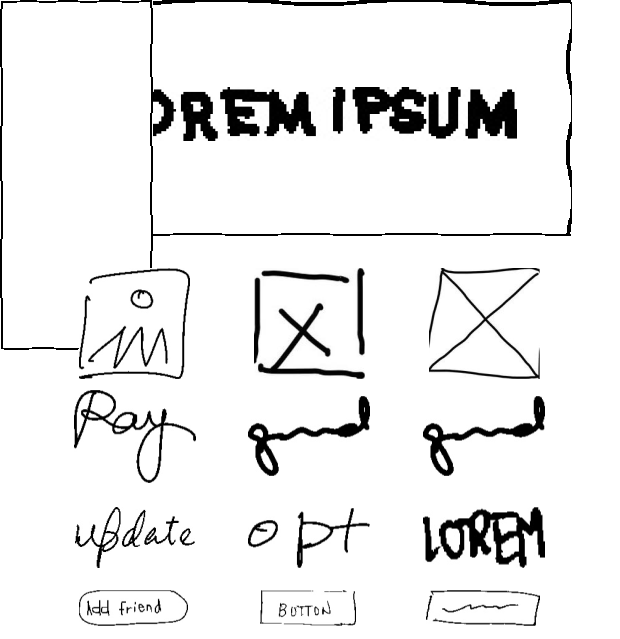 OREM IPSUM
Ray
update opt LOREM
Add friend BUTTON